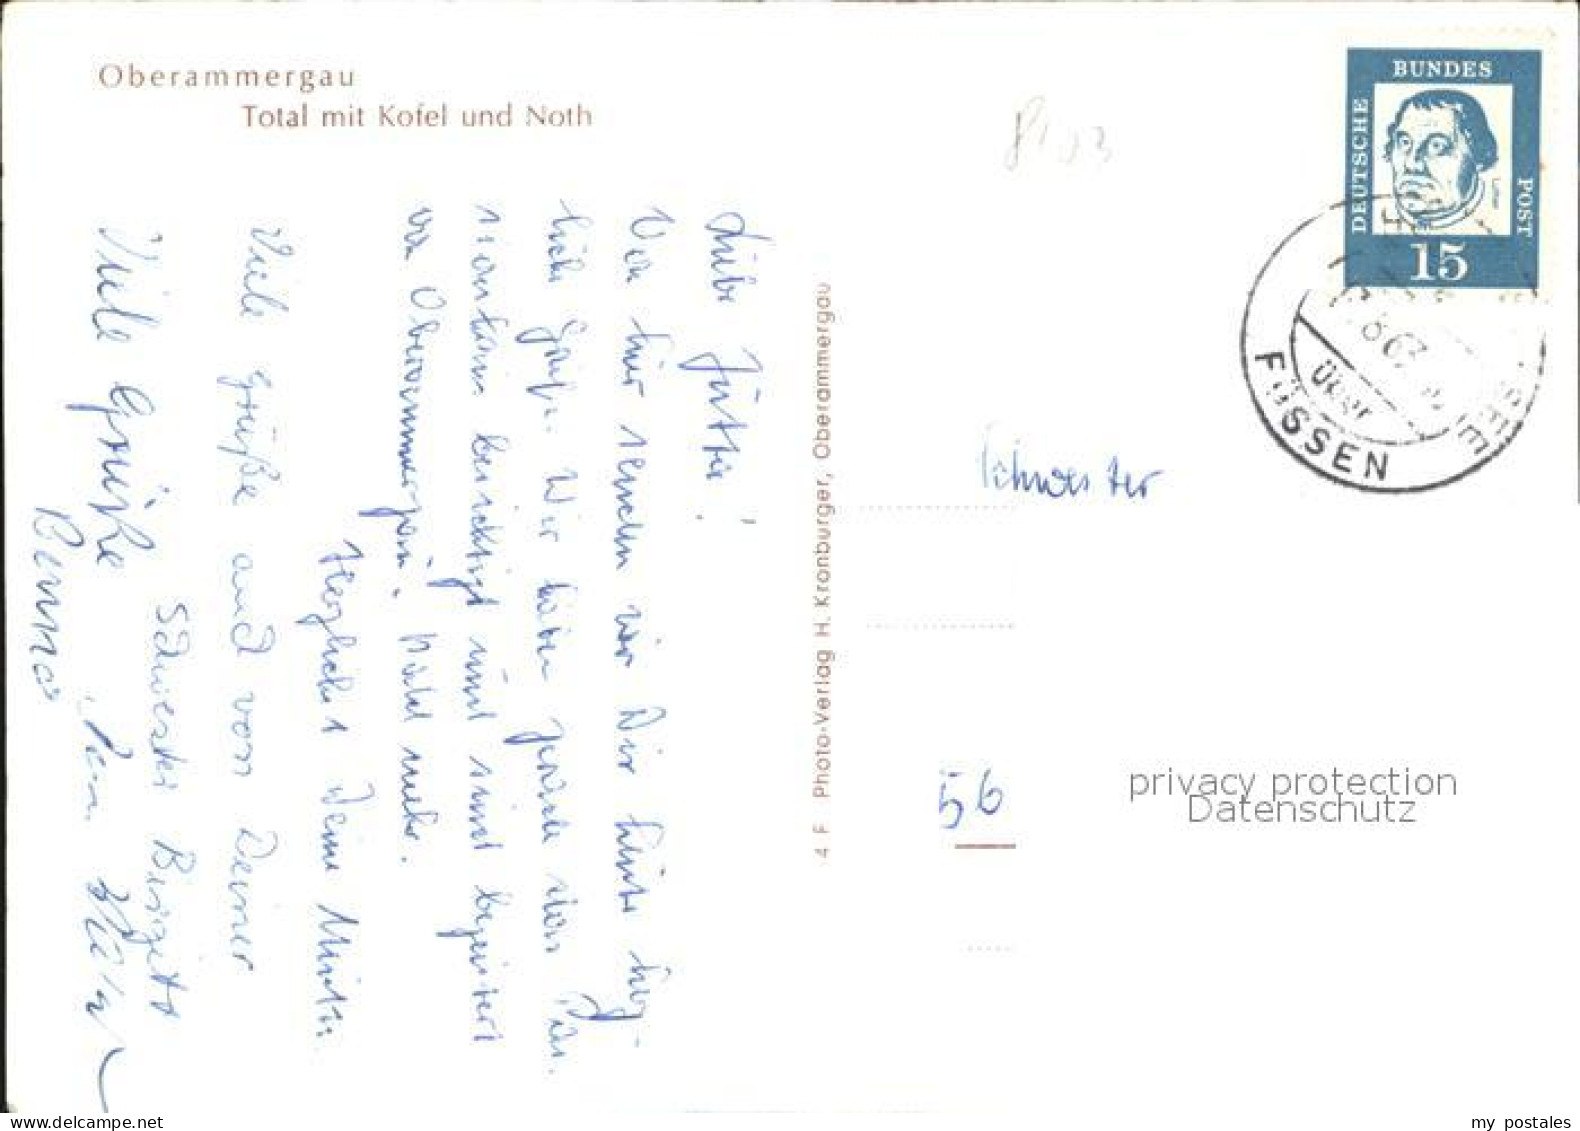 Oberammergau
Total mit Kofel und Noth
DEUTSCHE
BUNDES
POST
Luther
15
FÜSSEN
über
Liebe Jutta!
Von hier senden wir Dir liebe herz-
liche Grüße. Wir haben gerade die Pas-
besichtigt und sind begeistert
von Oberammergau. Bald mehr.
Herzlichst Deine Mutti
Viele Grüße auch von Deiner
Schwester Birgitt
Viele Grüße
Benno
4 F Photo-Verlag H. Kronburger, Oberammergau
Schwester
56
privacy protection
Datenschutz
my postales